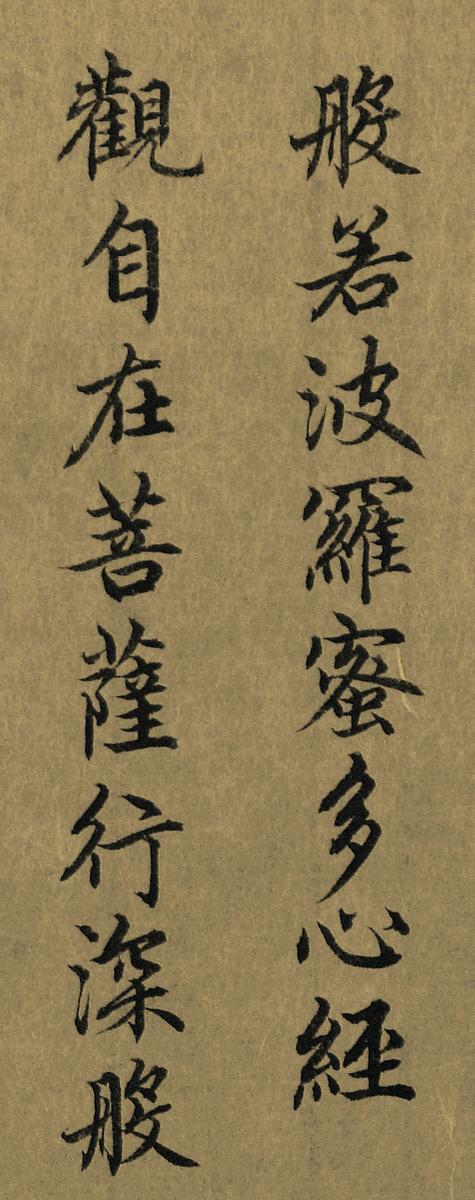 般若波羅蜜多心經
觀自在菩薩行深般